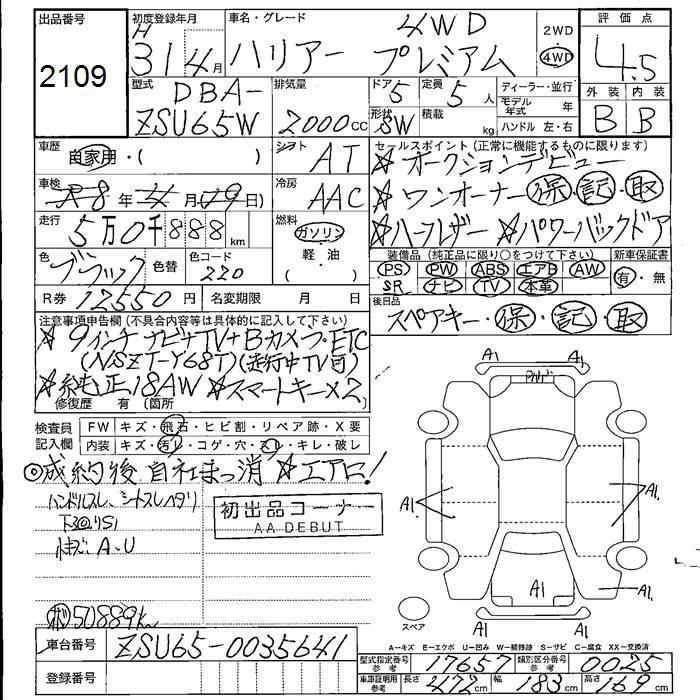 出品番号 2109
初度登録年月 H 31 4月
車名・グレード ハリアー 4WD プレミアム
2WD 4WD
評価点 4.5
外装 B 内装 B
型式 DBA-ZSU65W
排気量 2000cc
ドア 5 形状 SW
定員 5人 積載 kg
ディーラー・並行
モデル年式 年
ハンドル 左・右
車歴 自家用・( )
シフト AT
セールスポイント(正常に機能するものに限ります)
☆オークションデビュー
☆ワンオーナー 保・記・取
☆ハーフレザー ☆パワーバックドア
車検 R8年 月 日)
冷房 AAC
走行 5万0千888km
燃料 ガソリン 軽・油 ( )
色 ブラック 色替 色コード 220
装備品(純正品に限り○をつけて下さい) 新車保証書
PS PW ABS エアB AW 有・無
SR ナビ TV 本革
R券 12550円 名変期限 月 日
後日品 スペアキー・保・記・取
注意事項申告欄(不具合内容等は具体的に記入して下さい)
☆9インチナビ+TV+Bカメラ・ETC
(NSZT-Y68T)(走行中TV可)
☆純正18AW ☆スマートキー×2
修復歴 有(箇所
検査員記入欄
FW キズ・飛石・ヒビ割・リペア跡・X要
内装 キズ・汚レ・コゲ・穴・スレ・キレ・破レ
◎成約後自社まっ消 ☆エアに!
ハンドルスレ、シートスレヘタリ
A、U
初出品コーナー
AA DEBUT
50889km
A1 A1
A1 A1
A1 A1
A1
スペア
A-キズ E-エクボ U-凹み W-補修跡 S-サビ C-腐食 XX-交換済
車台番号 ZSU65-0035641
登録番号
型式指定番号 参考 17657 類別区分番号 参考 0025
車庫証明用 参考 長さ 472cm 幅 183cm 高さ 169cm